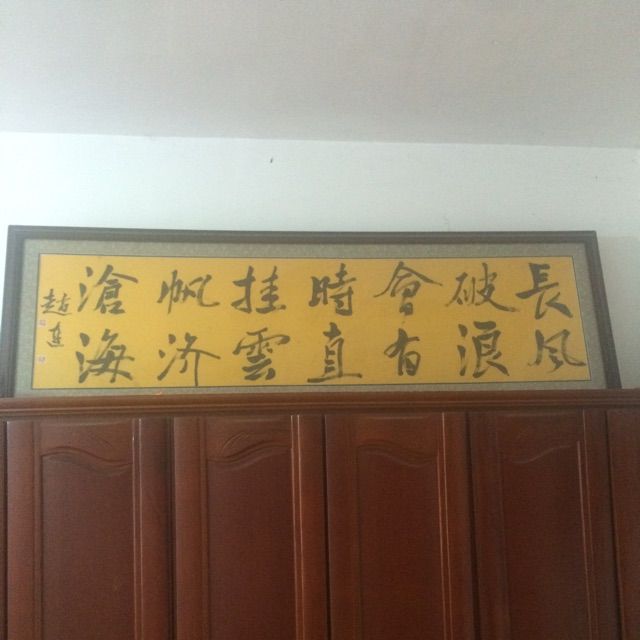 長風
破浪
會有
時直
挂雲
帆济
滄海